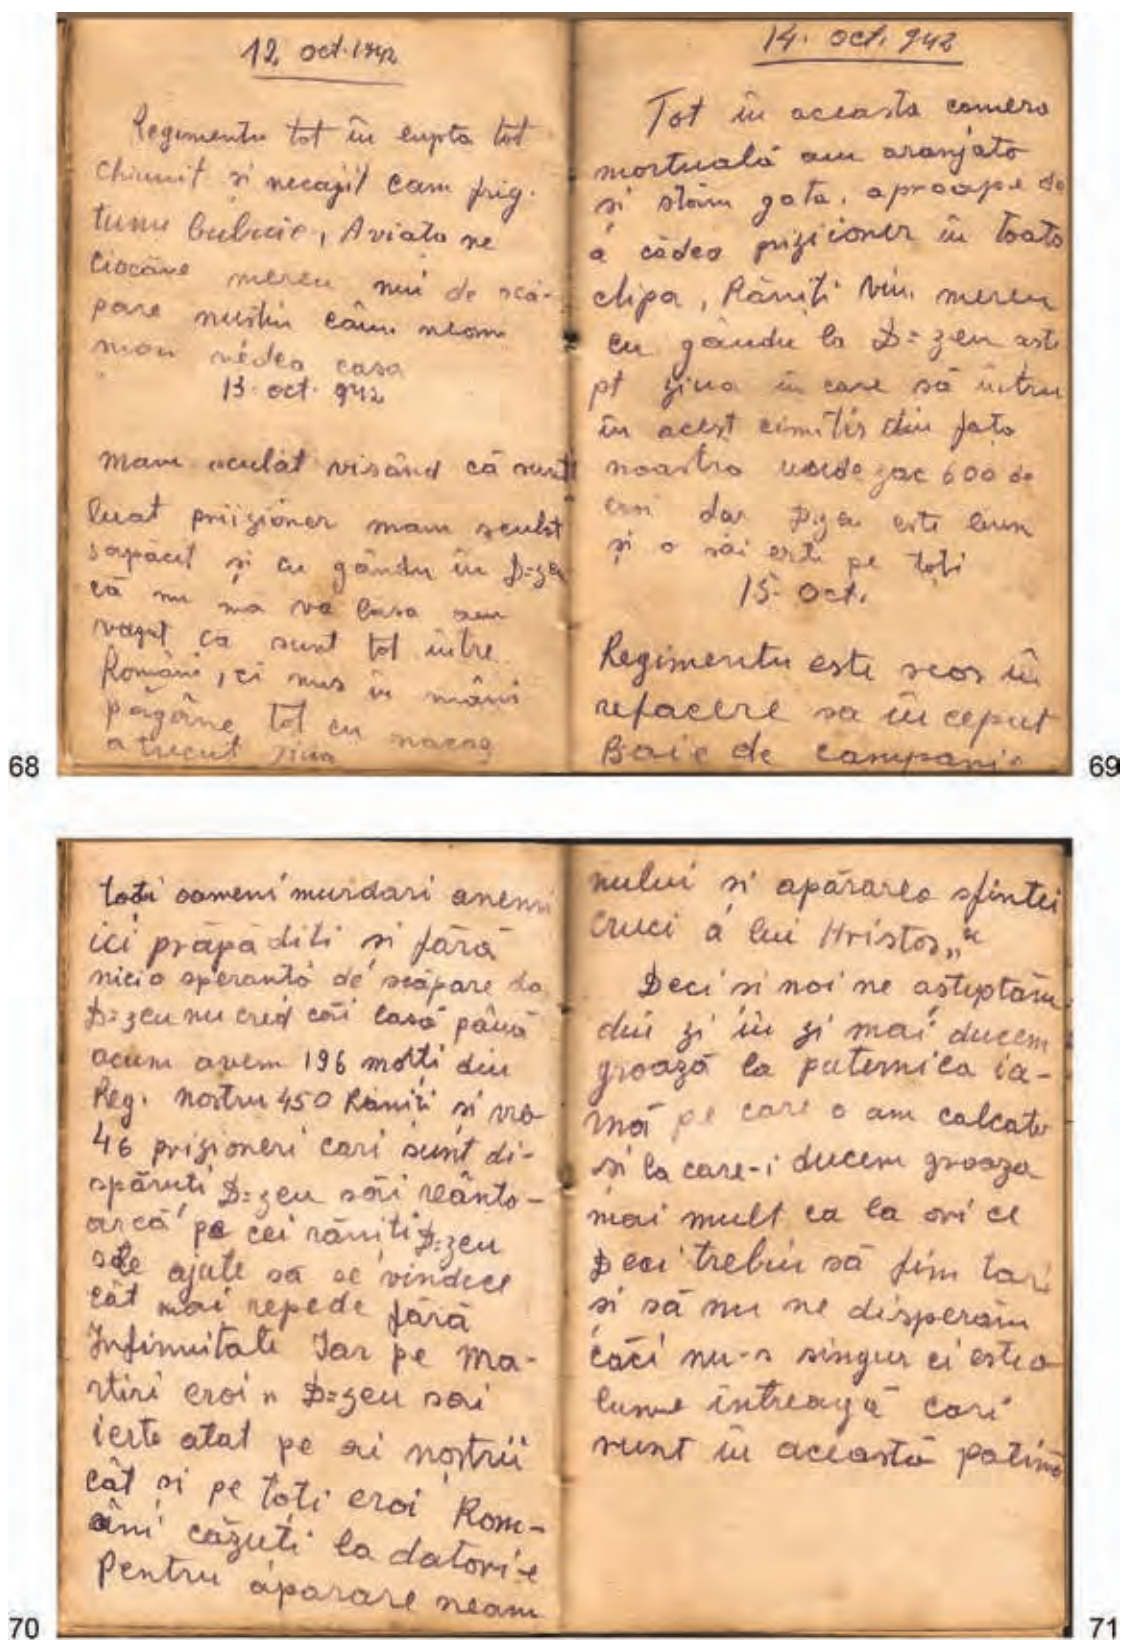 12 oct. 1942
Regimentu tot în lupta tot
chinuit si necajit cam frig.
tunu bubuie, Aviatia ne
Ciocăne mereu nui de scă-
pare nustiu cănd neom
mai vedea casa
13. oct. 942
mam culcat visând că sunt
luat priizioner mam sculat
sapăcit și cu găndu în D=zeu
că nu ma va lasa am
vazut ca sunt tot intre
Români, ci nus în mâni
păgâne tot cu nacaz
a trecut ziua
68
14. oct. 942
Tot în aceasta camera
mortuală am aranjato
si stăm gata, aproape de
a cădea prizioner în toata
clipa, Răniți vin mereu
cu găndu la D=zeu aste
pt ziua in care să intru
în acest cimitir din fata
noastra unde zac 600 de
eroi dar D.zeu este bun
și o săi erte pe toti
15. Oct.
Regimentu este scos în
refacere sa în ceput
Baie de campanie
69
toti oameni murdari anemi
ici prăpă diti si fără
nicio speranta de scăpare da
D=zeu nu cred căi lasă până
acum avem 196 morti din
Reg. nostru 450 Răniti si vro
46 prizioneri cari sunt di-
spăruti D=zeu săi reânto-
arcă pe cei răniti D=zeu
săle ajute să se vindece
cât mai repede fără
Infirmitate Iar pe Ma-
rtiri eroi n D=zeu sai
ierte atat pe ai noștrii
cât si pe toti eroi Rom-
âni căzuti la datori-e
Pentru aparare neam
70
nului si apărarea sfintei
Cruci a lui Hristos„"
Deci si noi ne asteptăm
din zi in zi mai ducem
groază la puternica ia-
rnă pe care o am calcat
si la care-i ducem groaza
mai mult ca la ori ce
Deci trebui să fim tari
si să nu ne disperăm
căci nu-s singur ci este o
lume intreagă cari
sunt în această patimă
71